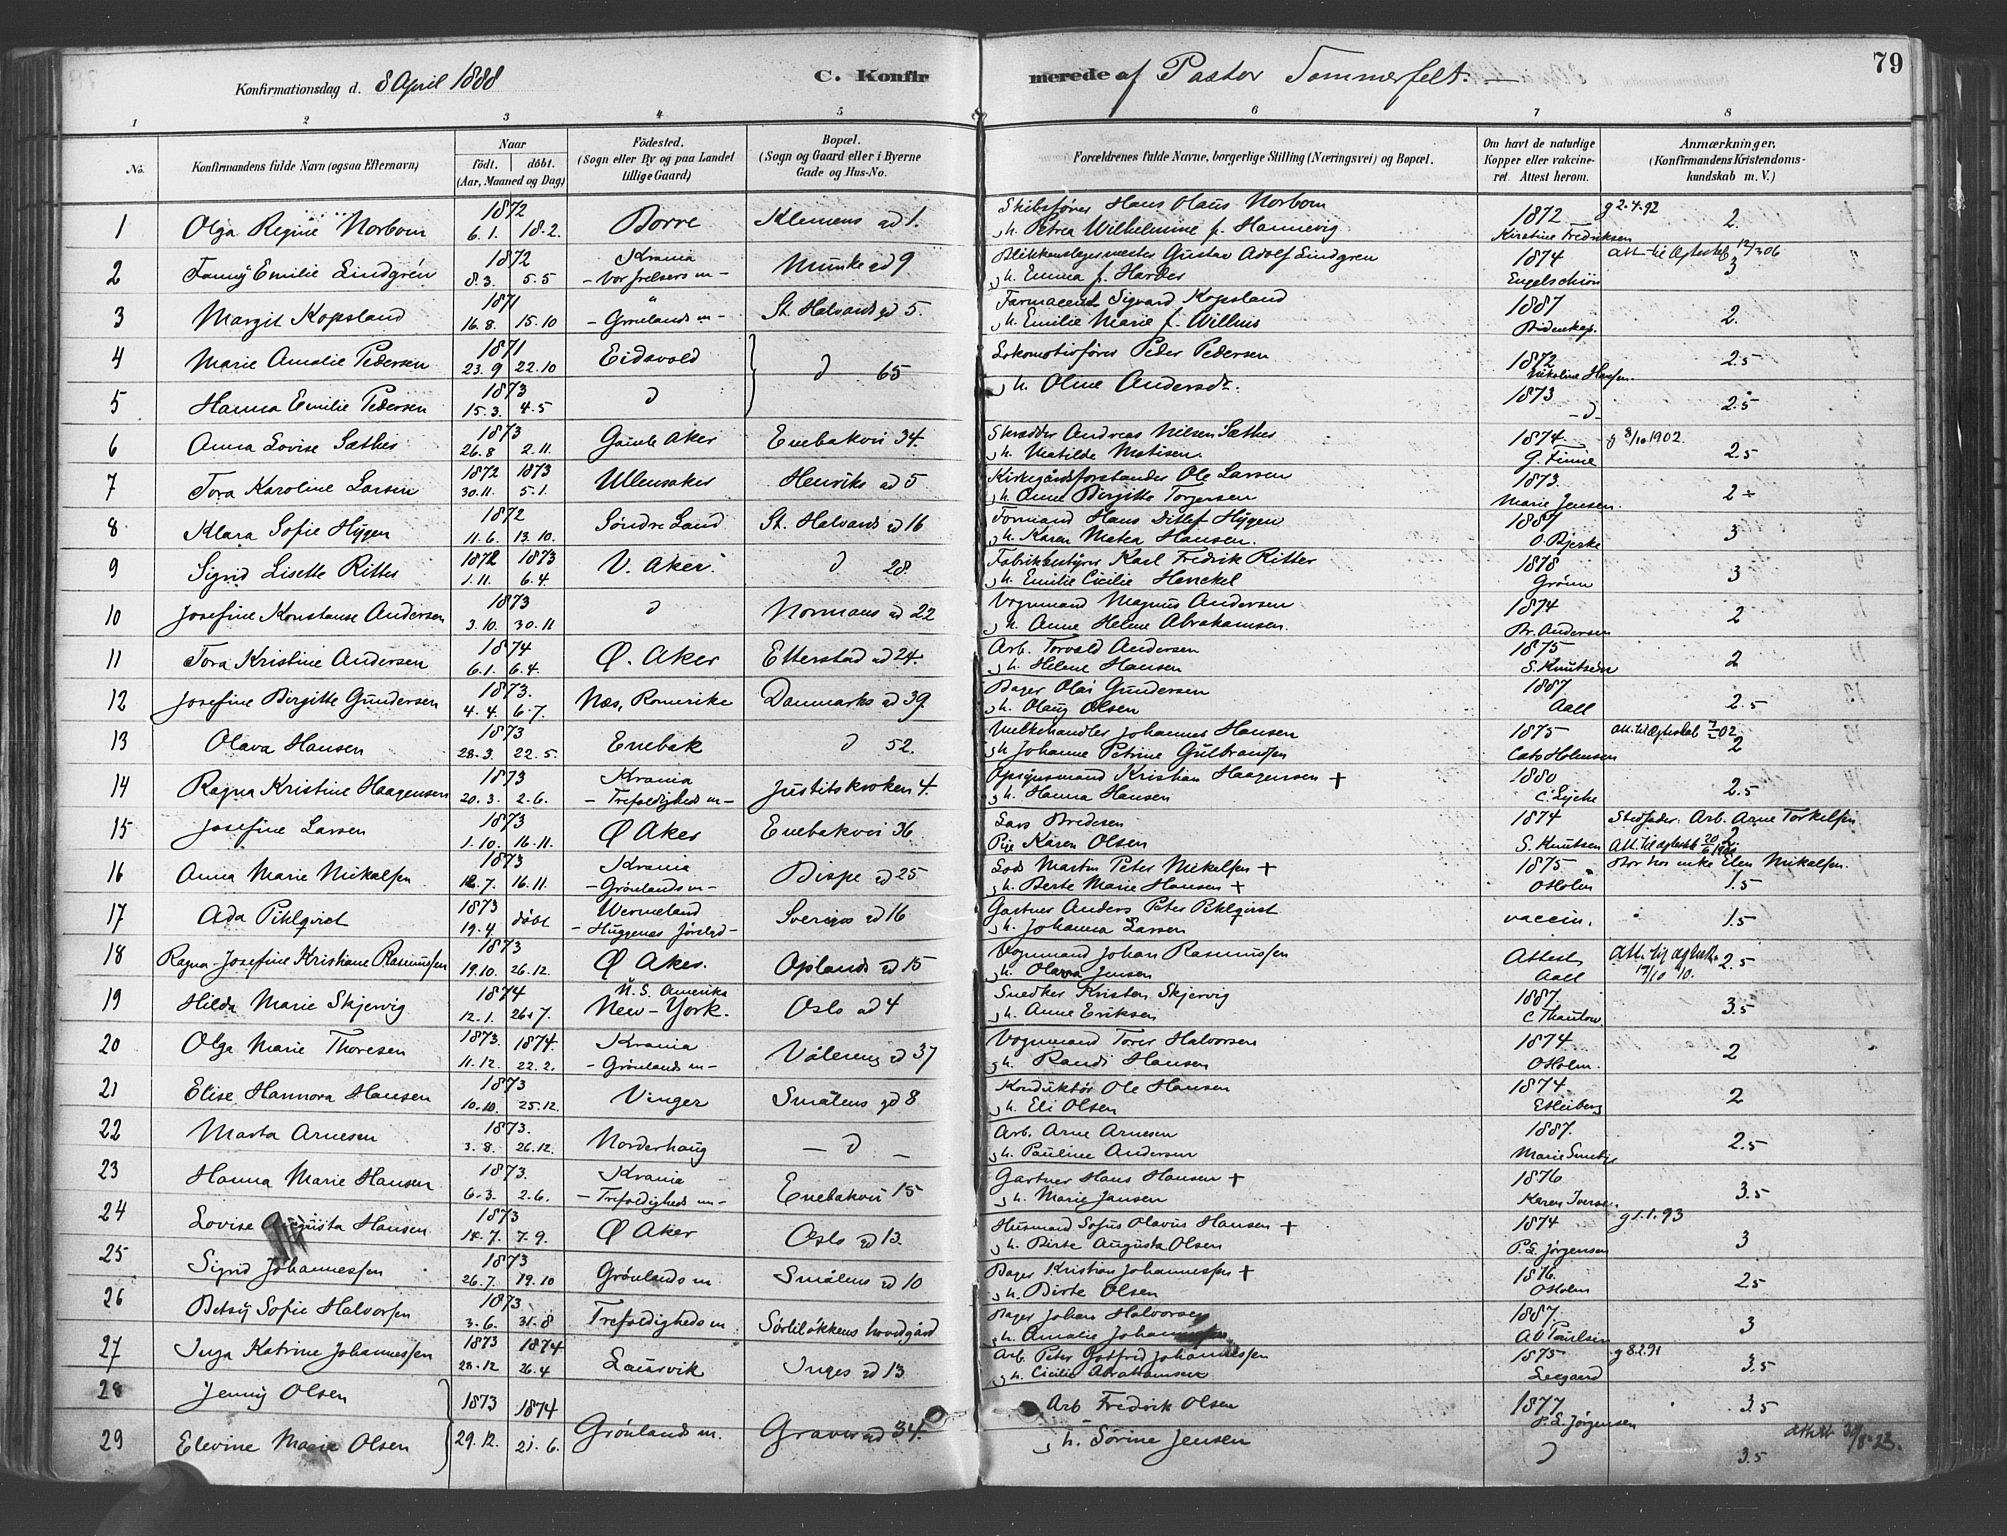 79
Konfirmationsdag d. 8 April 1888 C. Konfirmerede af Pastor Sommerfelt.
1 2 3 4 5 6 7 8
No. Konfirmandens fulde Navn (ogsaa Efternavn) Naar født. døbt. (Aar, Maaned og Dag) Födested. (Sogn eller By og paa Landet tillige Gaard) Bopæl. (Sogn og Gaard eller i Byerne Gade og Hus-No. Forældrenes fulde Navne, borgerlige Stilling (Næringsvei) og Bopæl. Om havt de naturlige Kopper eller vakcineret. Attest herom. Anmærkninger, (Konfirmandens Kristendomskundskab m. V.)
1 Olga Regine Norbom 1872 6.1. 18.2. Borre Klemens gd 1. Skibsfører Hans Olaus Norbom 1872 g 2.4.92 2.
h. Petrea Wilhelmine f. Hannevig Kirstine Fredriksen
2 Fanny Emilie Lindgrén 1872 8.3. 5.5 Krania - Vor frelsers m - Munke gd 9 Blikkenslagermester Gustav Adolf Lindgren 1874 Att. til Ægtesk 12/3 06 3
h. Emma f. Harder Engelschiøn
3 Margit Kopsland 1871 16.8. 15.10 " - Grønlands m - St. Halvards gd 5. Farmaceut Sigvard Kopsland 1887 2.
h. Emilie Marie f. Willms Bidenkap.
4 Marie Amalie Pedersen 1871 23.9 22.10 Eidsvold d 65 Lokomotivfører Peder Pedersen 1872 2.5
h. Oline Andersdr. Nikoline Hansen.
5 Hanna Emilie Pedersen 1873 15.3. 4.5 d 1873 - d - 2.5
6 Anna Lovise Sæther 1873 26.8 2.11. Gamle Aker Enebakvei 34. Skrædder Andreas Nilsen Sæther 1874. g 8/10 1902. 2.5
h. Matilde Matisen. G. Finne
7 Tora Karoline Larsen 1872 1873 30.11. 5.1. Ullensaker Henriks gd 5 Kirkegårdsforstander Ole Larsen 1873. 2 ÷
h. Anne Birgitte Torgersen Marie Jensen.
8 Klara Sofie Hygen 1872 11.6. 13.10. Söndre Land St. Halvards gd 16 Formand Hans Ditlef Hygen 1887 3
h. Karen Mathea Hansen. O. Bjerke
9 Sigrid Lisette Ritter 1872 1873 1.11. 6.4. V. Aker. d 28. Fabrikbestyrer Karl Fredrik Ritter 1878 3
h. Emilie Cicilie Henckel Grönn
10 Josefine Konstanse Andersen 1873 3.10. 30.11 d Normans gd 22 Vognmand Magnus Andersen 1874 2
h. Anne Helene Abrahamsen. Br. Andersen
11 Tora Kristine Andersen 1874 6.1. 6.4. Ø. Aker Etterstad gd 24. Arb. Torvald Andersen 1875 2
h. Helene Hansen S. Knutsen
12 Josefine Birgitte Gundersen 1873. 4.4. 6.7. Næs, Romerike Danmarks gd 39. Bager Olai Gundersen 1887 2.5
h. Olaug Olsen Aall
13 Olava Hansen 1873 28.3. 22.5. Enebak d 52. Melkehandler Johannes Hansen 1875 Att. til Ægteskab 02. 2
h Johanne Petrine Gulbrandsen Cato Holmsen
14 Ragna Kristine Haagensen 1873 20.3. 2.6. Krania - Trefoldigheds m - Justitskroken 4. Opsynsmand Kristian Haagensen + 1880 2.5
h. Hanna Hansen C. Lyche
15 Josefine Larsen 1873 1.10. 16.11. Ø Aker Enebakvei 36 Lars Bredesen 1874 Stedfader. Arb. Arne Torkelsen
Pige Karen Olsen S. Knutsen Att. til ægtesk 20/6 2
16 Anna Marie Mikalsen 1873 12.7. 16.11. Krania - Grönlands m - Bispe gd 25 Lods Martin Peter Mikelsen + 1875 Bor hos enke Elen Mikalsen. 1.5
h. Berte Marie Hansen + O Holm
17 Ada Pihlqvist 1873 19.4. døbt Wermeland - Huggenæs Församl - Sverres gd 16 Gartner Anders Peter Pihlqvist vaccin. 1.5
h. Johanna Larsen
18 Ragna Josefine Kristiane Rasmussen 1873 19.10. 26.12. Ø Aker. Oplands gd 15 Vognmand Johan Rasmussen Attest Att. til ægtesk. 17/10 10. 2.5
h. Olava Jensen Aall
19 Hilda Marie Skjervig 1874 12.1. 26.7. U. S. Amerika New-York. Oslo gd 4 Snedker Kristen Skjervig 1887. 3.5
h. Anne Eriksen C. Thaulow.
20 Olga Marie Thoresen 1873. 1874. 11.12. 22.2. Krania - Grönlands m - Vålereng gd 37 Vognmand Torer Halvorsen 1874 2
h. Randi Hansen O Holm.
21 Elise Hannora Hansen 1873 10.10. 25.12. Vinger Smålens gd 8 Konduktör Ole Hansen 1874. 2
h. Eli Olsen E Heiberg
22 Marta Arnesen 1873. 3.8. 26.12. Norderhaug - d - Arb. Arne Arnesen 1887. 2.5
h. Pauline Andersen Marie Smeby
23 Hanna Marie Hansen 1873. 6.3. 2.6. Krania - Trefoldigheds m - Enebakvei 15 Gartner Hans Hansen + 1876 3.5
h. Marie Jansen Karen Iversen
24 Lovise Augusta Hansen 1873 14.7. 7.9. Ø Aker Oslo gd 13. Husmand Sofus Olavus Hansen + 1874 g 1.1.93 3
h. Birte Augusta Olsen P. L. Jørgensen
25 Sigrid Johannessen 1873 26.7. 19.10 Grönlands m. Smålens gd 10 Bager Kristian Johannessen + 1876. 2.5
h. Birte Olsen O Holm
26 Betsy Sofie Halvorsen 1873 3.6. 31.8 Trefoldigheds m Sörliløkkens hovedgård Bager Johan Halvorsen 1887. 3
h. Amalie Johannessen A O Paulsen
27 Inga Katrine Johannessen 1873 1874 28.12 26.4 Laurvik Inges gd 13 Arb. Peter Gotfred Johannessen 1875 g 8.2.91 3.5
h. Cicilie Abrahamsen Leegaard
28 Jenny Olsen 1873 1874 Grönland m. Gravers gd 34. Arb Fredrik Olsen 1877 3.5
h. Sörine Jensen P. L. Jørgensen
29 Elevine Marie Olsen 29.12. 21.6. d 3.5 30/8-23.